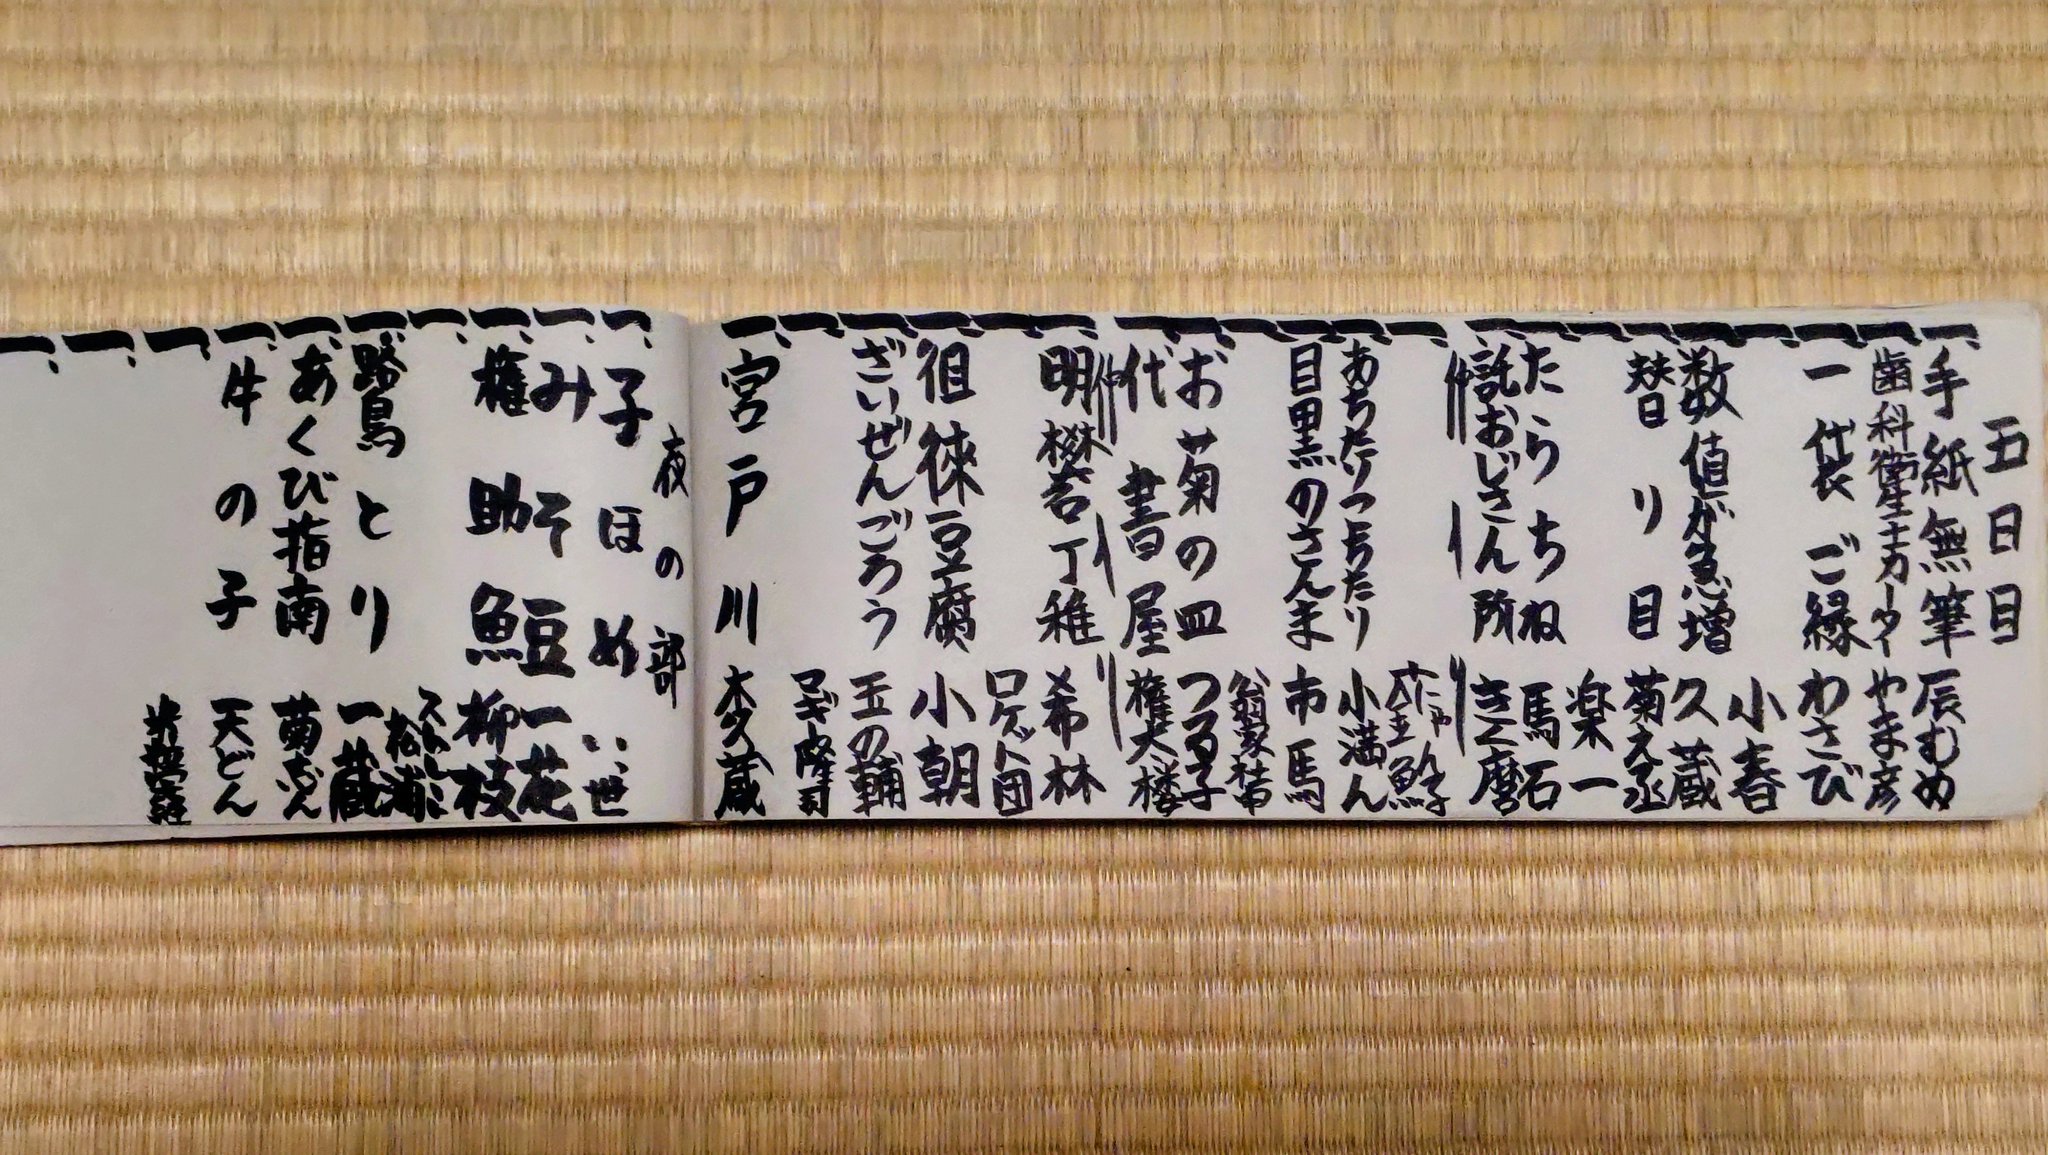 五日目
一、手紙無筆 辰むめ
一、歯科衛生士カーター やま彦
一、一袋ご縁 わさび
一、小春
一、数値が急増 久蔵
一、替り目 菊之丞
一、楽一
一、たらちね 馬石
一、託おじさん所 きく麿
仲入り
一、にゃん子 金魚
一、あちたりつちたり 小満ん
一、目黒のさんま 市馬
一、翁家社中
一、お菊の皿 つる子
一、代書屋 権太楼
仲入り
一、明礬丁稚 希林
一、ロケット団
一、徂徠豆腐 小朝
一、ざいぜんごろう 玉の輔
一、マギー隆司
一、宮戸川 木久蔵
夜の部
一、子ほめ いっ世
一、みそ豆 一花
一、権助魚 柳枝
一、松浦
一、鷺とり 一蔵
一、あくび指南 菊志ん
一、牛の子 天どん
一、